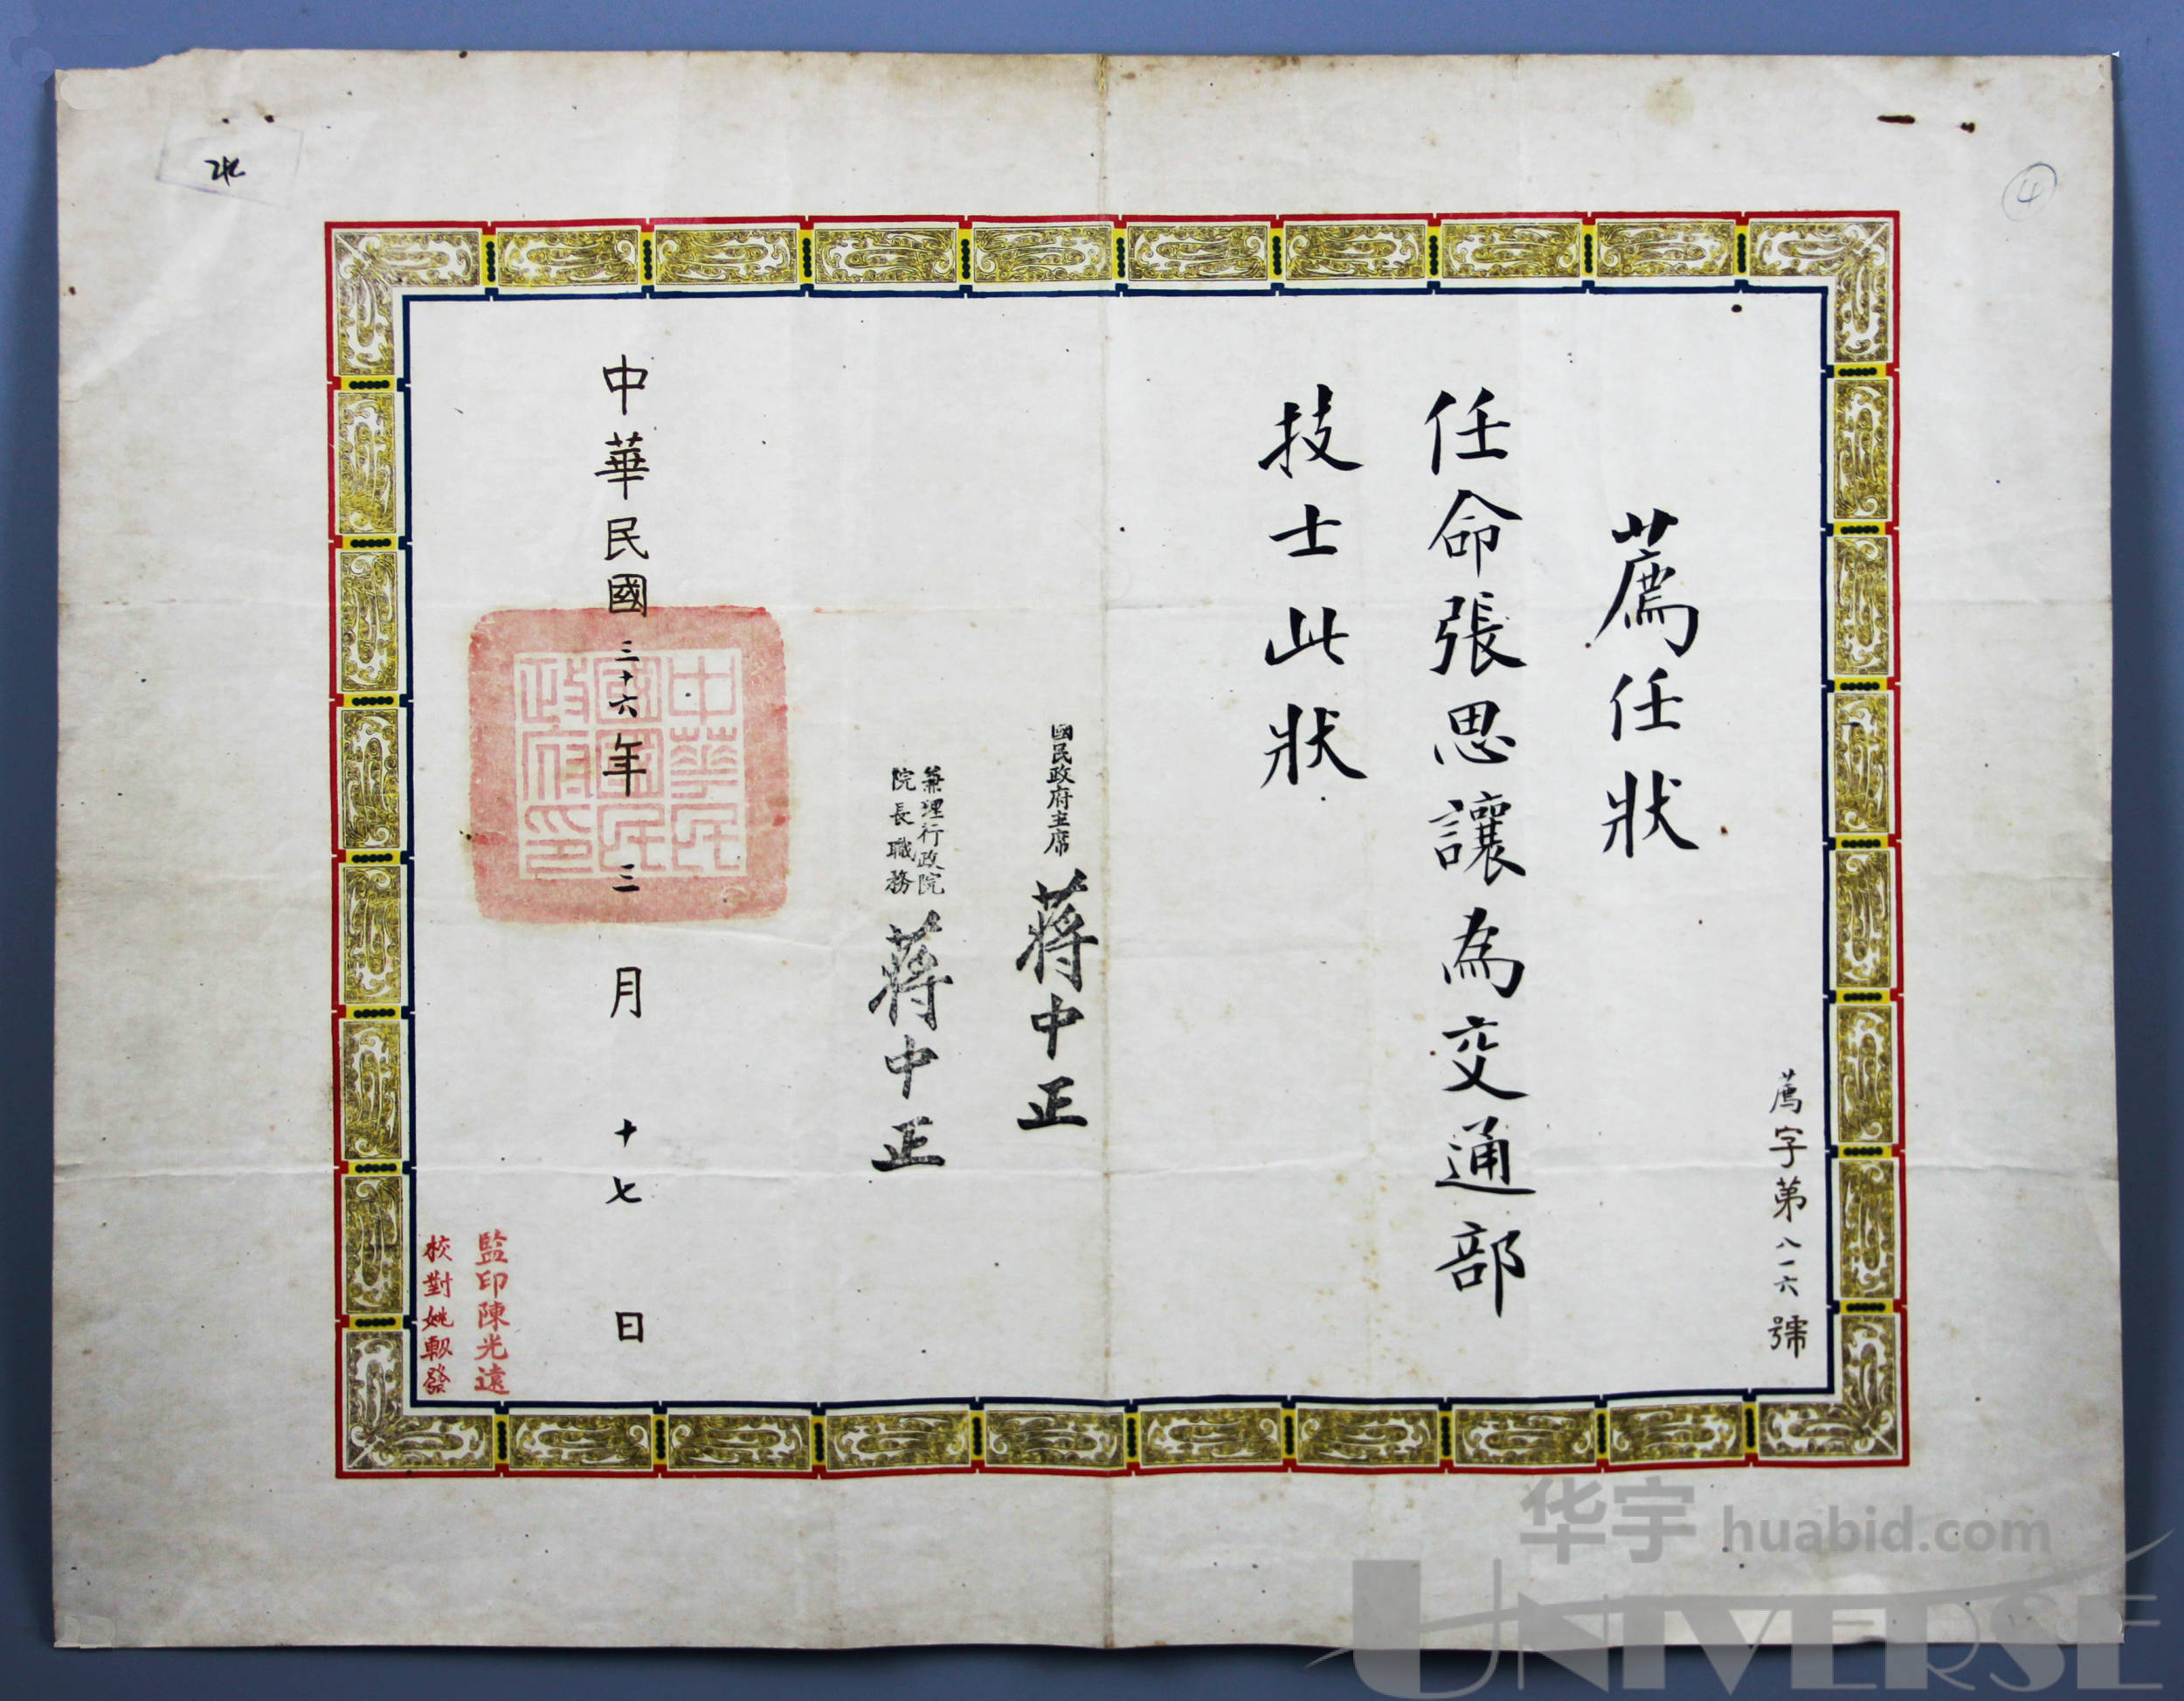 薦字第八一六號
薦任狀
任命張思讓為交通部
技士此狀
國民政府主席 蔣中正
兼理行政院
院長職務 蔣中正
中華民國三十六年三月十七日
中華民
國國民
政府印
監印陳光遠
校對姚軔發
4
华宇 huabid.com
UNIVERSE